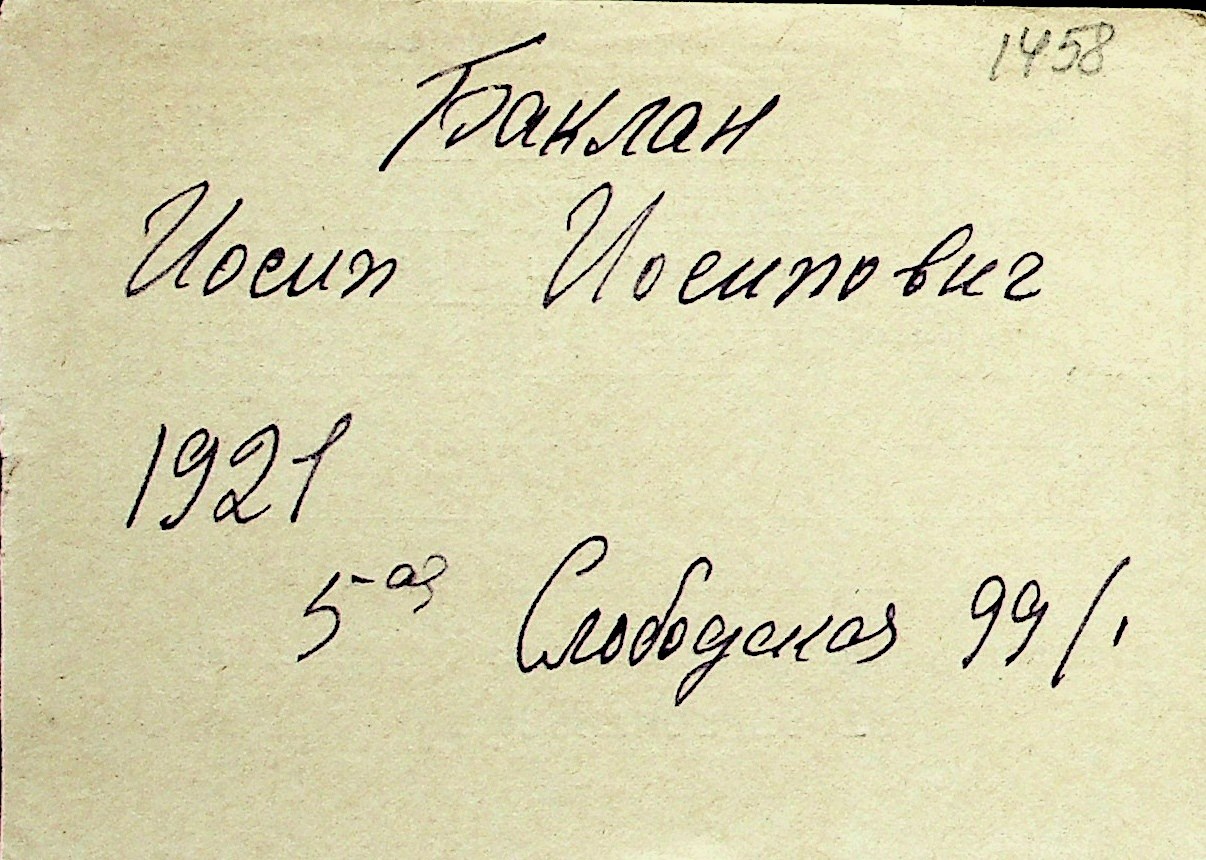 1458
Баклан
Иосип Иосипович
1921
5-ая Слободская 99/1